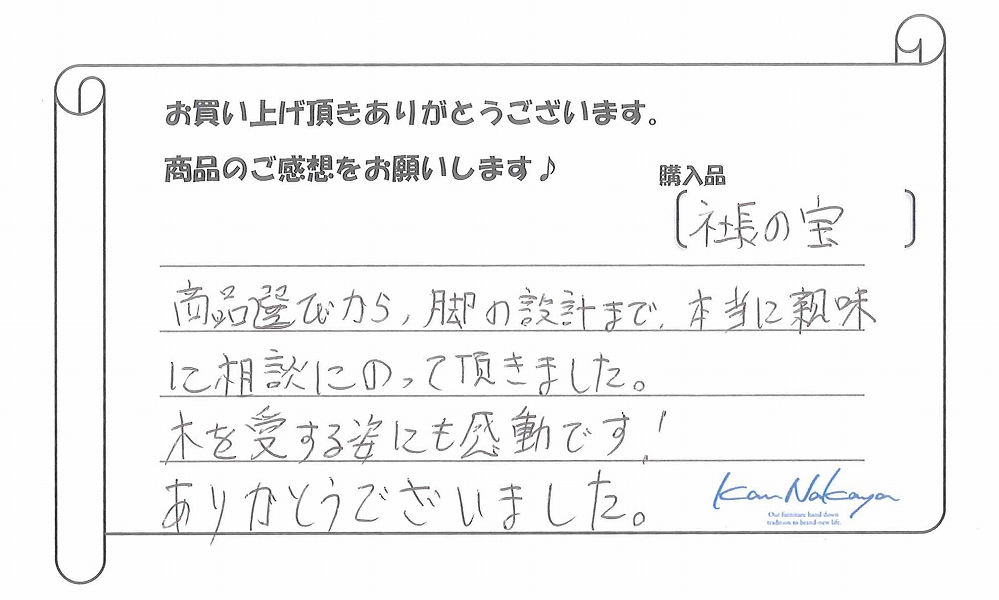 お買い上げ頂きありがとうございます。
商品のご感想をお願いします♪
購入品
〔社長の宝 〕
商品選びから、脚の設計まで、本当に親味
に相談にのって頂きました。
木を愛する姿にも感動です!
ありがとうございました。
Kan Nakaya
Our furniture hand down
tradition to brand-new life.